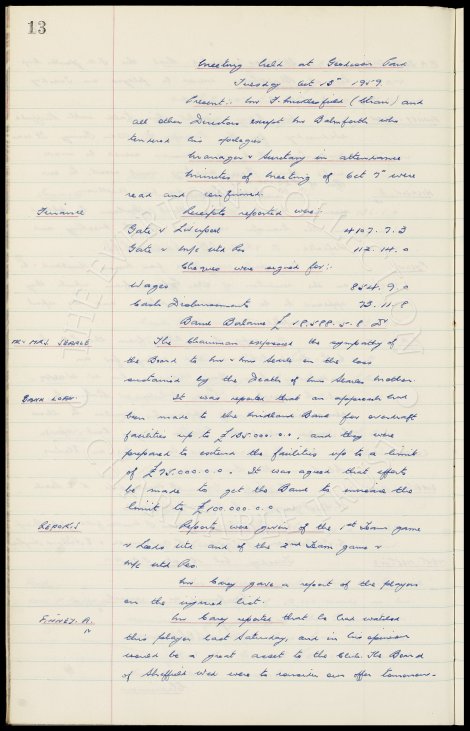 13
Meeting held at Goodison Park
Tuesday Oct 13th 1959.
Present:- Mr F. Micklesfield (Chair) and
all other Directors except Mr Balmforth who
tendered his apologies
Manager & Secretary in attendance
Minutes of Meeting of Oct 7th were
read and confirmed.
Finance Receipts reported were:-
Gate v Liverpool 4107. 7. 3
Gate v M/c Utd Res 112. 14. 0
Cheques were signed for:-
Wages 854. 9. 0
Cash Disbursements 73. 11. 8
Bank Balance £ 58.588. 5. 8. Dr
MR & MRS. SEARLE The Chairman expressed the sympathy of
the Board to Mr & Mrs Searle in the loss
sustained by the Death of Mrs Searles Mother.
BANK LOAN. It was reported that an approach had
been made to the Midland Bank for overdraft
facilities up to £125.000. 0. 0, and they were
prepared to extend the facilities up to a limit
of £75.000. 0. 0. It was agreed that efforts
be made to get the Bank to increase the
limit to £100.000. 0. 0
REPORTS Reports were given of the 1st Team game
v Leeds Utd and of the 2nd Team game v
M/c Utd Res.
Mr Carey gave a report of the players
on the injured list.
FINNEY. A. Mr Carey reported that he had watched
this player last Saturday, and in his opinion
would be a great asset to the Club. The Board
of Sheffield Wed were to consider our offer tomorrow.
THE EVERTON COLLECTION